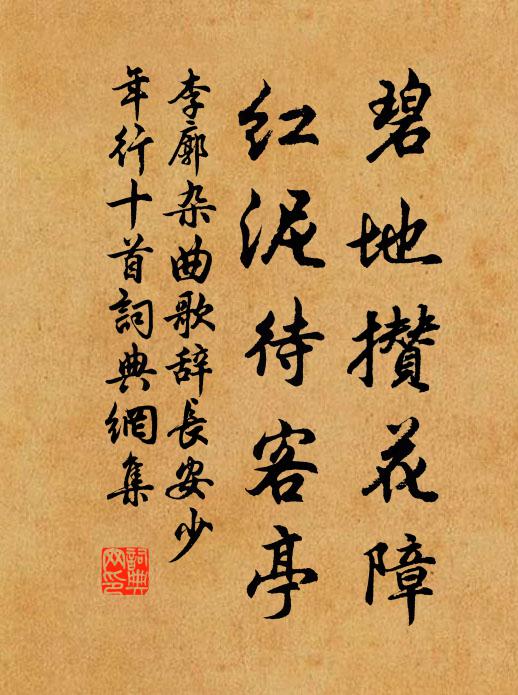 碧地攒花障
红泥待客亭
李廓杂曲歌辞长安少
年行十首词典網集
詞典網印